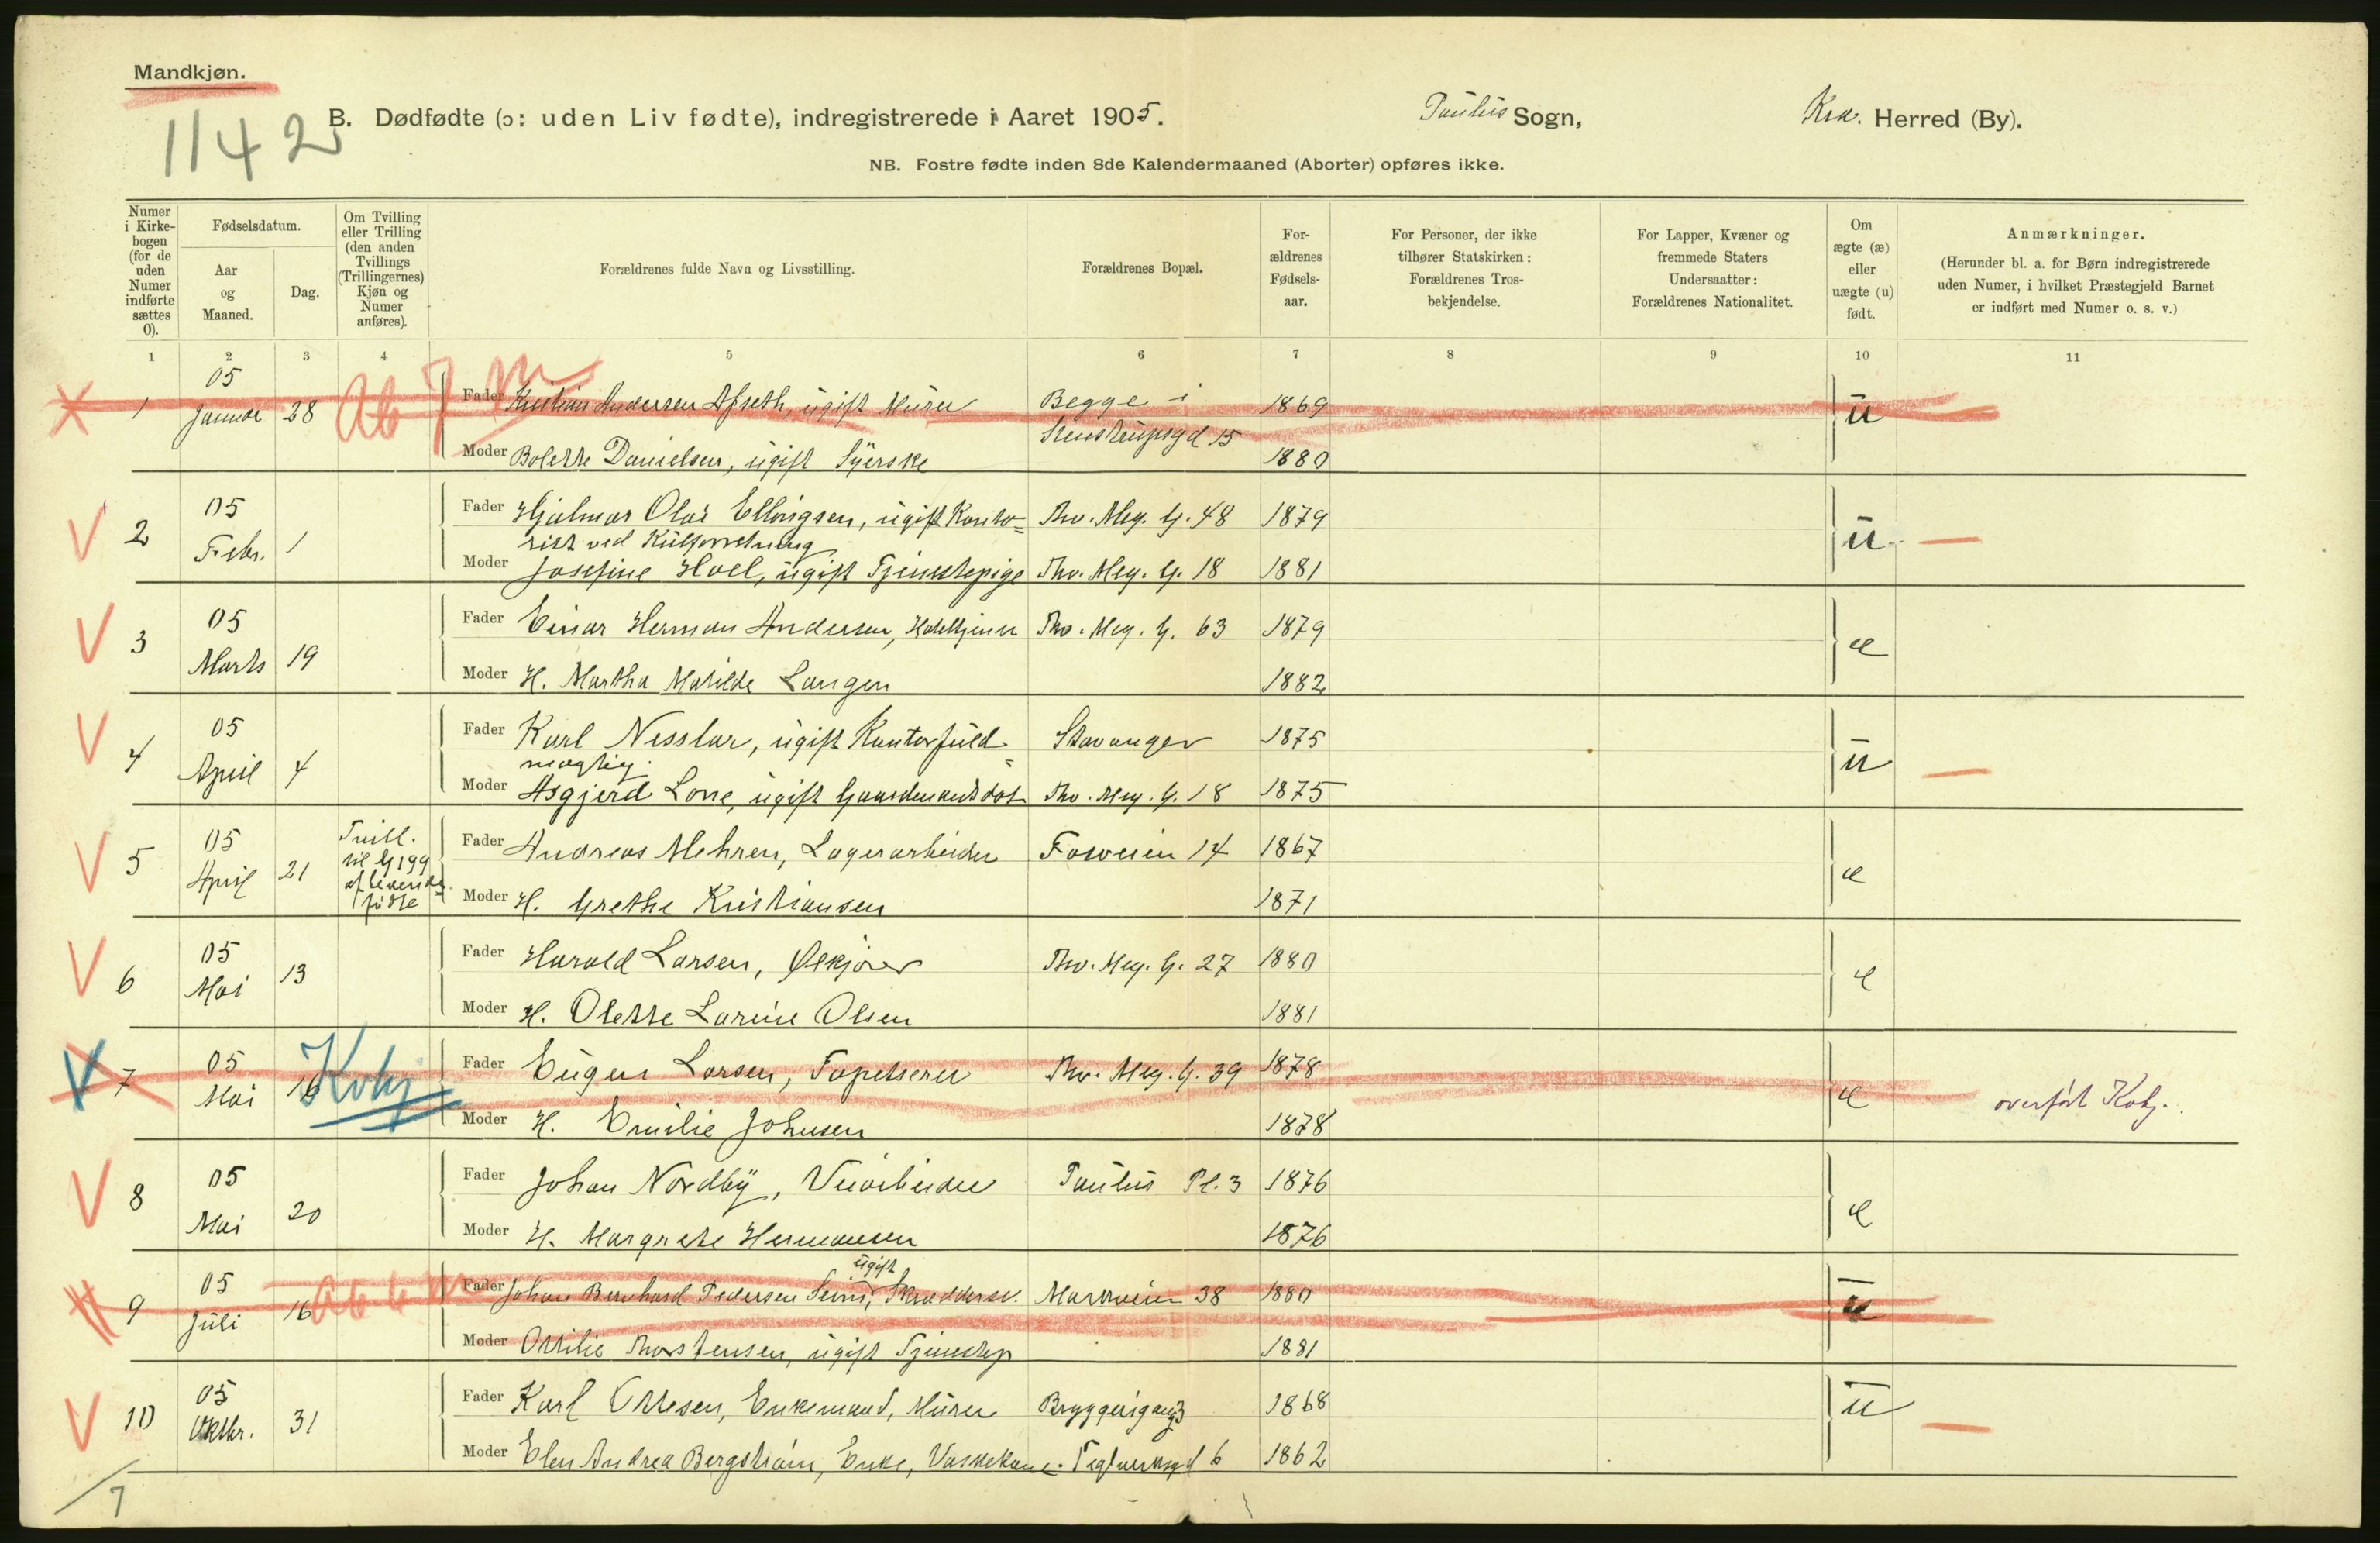 Mandkjøn.
1142
B. Dødfødte (ɔ: uden Liv fødte), indregistrerede i Aaret 1905.
Paulus Sogn,
Kra. Herred (By).
NB. Fostre fødte inden 8de Kalendermaaned (Aborter) opføres ikke.
Numer i Kirke-bogen (for de uden Numer indførte sættes 0).
Fødselsdatum.
Aar og Maaned.
Dag.
Om Tvilling eller Trilling (den anden Tvillings (Trillingernes) Kjøn og Numer anføres).
Forældrenes fulde Navn og Livsstilling.
Forældrenes Bopæl.
For-ældrenes Fødsels-aar.
For Personer, der ikke tilhører Statskirken: Forældrenes Tros-bekjendelse.
For Lapper, Kvæner og fremmede Staters Undersaatter: Forældrenes Nationalitet.
Om ægte (æ) eller uægte (u) født.
Anmærkninger.
(Herunder bl. a. for Børn indregistrerede uden Numer, i hvilket Præstegjeld Barnet er indført med Numer o. s. v.)
1 2 3 4 5 6 7 8 9 10 11
05
1 Januar 28 Ab 7 m Fader Kristian Andersen ugift Murer Begge i 1869 u
Stenstrupsgd 15
Moder Bolette Danielsen, ugift Syerske 1880
2 05 Fader Hjalmar Olai Ellingsen, ugift Konto= Thv. Mey. G. 48 1879 u
Febr. 1 rist ved Kulforretning
Moder Josefine Hoel, ugift Tjenestepige Thv. Mey. G. 18 1881
3 05 Fader Einar Herman Andersen, Thv. Mey. G. 63 1879 æ
Marts 19
Moder H. Martha Matilde Langen 1882
4 05 Fader Karl Nesslar, ugift Kontorfuld= Stavanger 1875 u
April 4 mægtig.
Moder Asgjerd Lone, ugift Gaardmandsdat Thv. Mey. G. 18 1875
5 05 Tvill. Fader Andreas Mehren, Lagerarbeider Fossveien 14 1867 æ
April 21 til G 199
af levende
fødte Moder H. Grethe Kristiansen 1871
6 05 Fader Harald Larsen, Ølkjører Thv. Mey. G. 27 1880 æ
Mai 13
Moder H. Olette Larine Olsen 1881
7 05 Fader Eugen Larsen, Tapetserer Thv. Mey. G. 39 1878 æ
Mai 16 Kobj overført Kobj.
Moder H. Emilie Johnsen 1878
8 05 Fader Johan Nordby, Veiarbeider Paulus Pl. 3 1876 æ
Mai 20
Moder H. Margrete Hermansen 1876
ugift
9 05 Fader Johan Bernhard Pedersen Skræddersv. Markveien 38 1880 u
Juli 16 Ab 6 m
Moder Ottilie Thorstensen, ugift Tjenestep 1881
10 05 Fader Karl Ottesen, Enkemand, Murer Bryggerigang 3 1868 u
Oktbr. 31
Moder Elen Andrea Bergstrøm, Enke, Vaskekone. Teglverksgd 6 1862
7